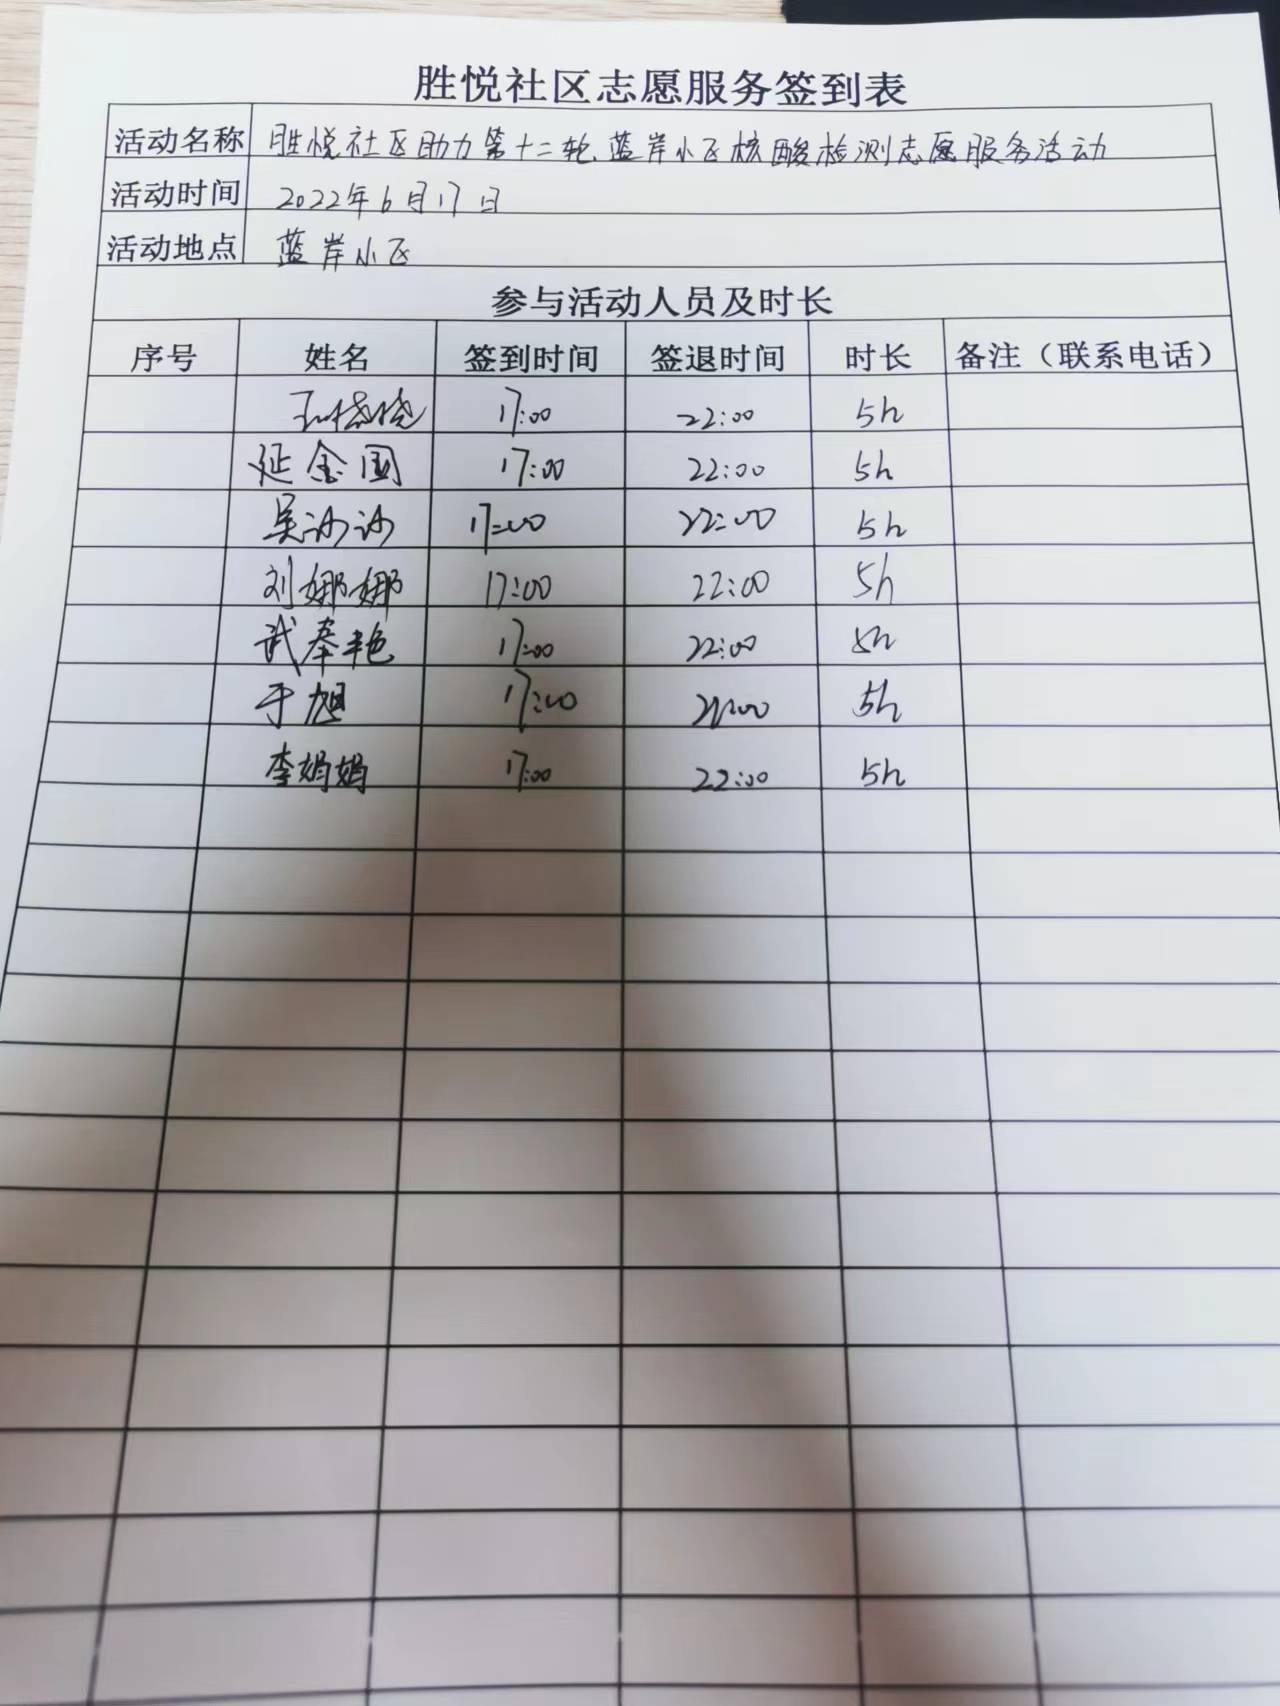 胜悦社区志愿服务签到表
活动名称 胜悦社区助力第十二轮蓝岸小区核酸检测志愿服务活动
活动时间 2022年6月17日
活动地点 蓝岸小区
参与活动人员及时长
序号 姓名 签到时间 签退时间 时长 备注（联系电话）
17:00 22:00 5h
延金国 17:00 22:00 5h
吴沙沙 17:00 22:00 5h
刘娜娜 17:00 22:00 5h
武奉艳 17:00 22:00 5h
于旭 17:00 22:00 5h
李娟娟 17:00 22:00 5h